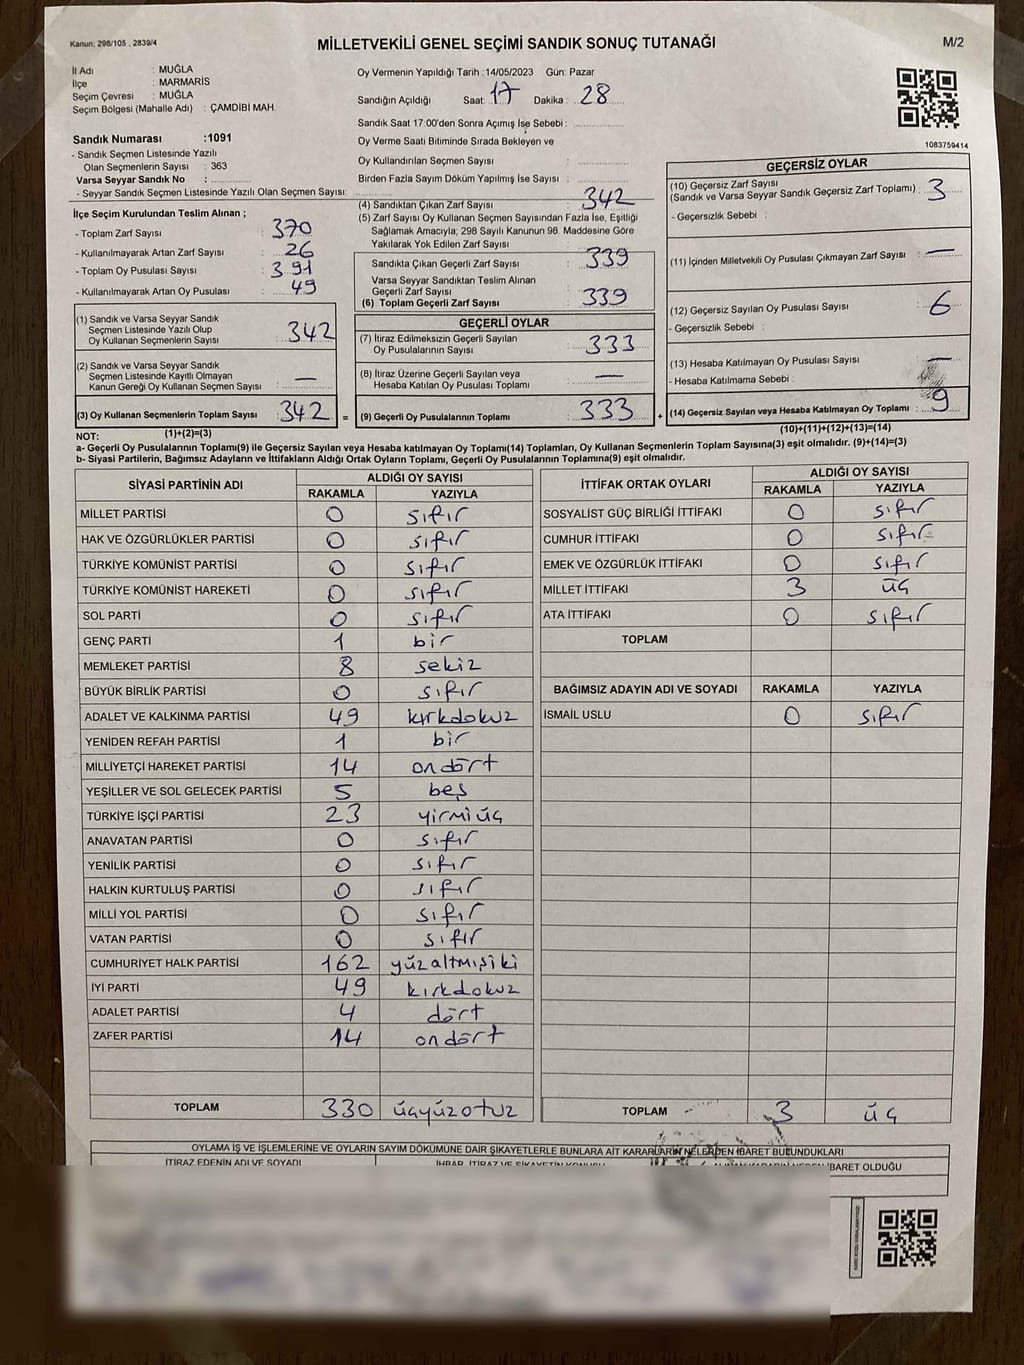 Kanun; 298/105 , 2839/4
MİLLETVEKİLİ GENEL SEÇİMİ SANDIK SONUÇ TUTANAĞI
M/2
İl Adı : MUĞLA
İlçe : MARMARİS
Seçim Çevresi : MUĞLA
Seçim Bölgesi (Mahalle Adı) : ÇAMDİBİ MAH.
Sandık Numarası :1091
- Sandık Seçmen Listesinde Yazılı
Olan Seçmenlerin Sayısı : 363
Varsa Seyyar Sandık No :
- Seyyar Sandık Seçmen Listesinde Yazılı Olan Seçmen Sayısı:
Oy Vermenin Yapıldığı Tarih :14/05/2023 Gün: Pazar
Sandığın Açıldığı Saat: 17 Dakika : 28
Sandık Saat 17:00'den Sonra Açımış İse Sebebi :
Oy Verme Saati Bitiminde Sırada Bekleyen ve
Oy Kullandırılan Seçmen Sayısı :
Birden Fazla Sayım Döküm Yapılmış İse Sayısı :
1083759414
İlçe Seçim Kurulundan Teslim Alınan ;
- Toplam Zarf Sayısı : 370
- Kullanılmayarak Artan Zarf Sayısı : 26
- Toplam Oy Pusulası Sayısı : 391
- Kullanılmayarak Artan Oy Pusulası : 49
(1) Sandık ve Varsa Seyyar Sandık
Seçmen Listesinde Yazılı Olup
Oy Kullanan Seçmenlerin Sayısı : 342
(2) Sandık ve Varsa Seyyar Sandık
Seçmen Listesinde Kayıtlı Olmayan
Kanun Gereği Oy Kullanan Seçmen Sayısı : —
(3) Oy Kullanan Seçmenlerin Toplam Sayısı : 342 =
(1)+(2)=(3)
(4) Sandıktan Çıkan Zarf Sayısı : 342
(5) Zarf Sayısı Oy Kullanan Seçmen Sayısından Fazla İse, Eşitliği
Sağlamak Amacıyla; 298 Sayılı Kanunun 98. Maddesine Göre
Yakılarak Yok Edilen Zarf Sayısı :
Sandıkta Çıkan Geçerli Zarf Sayısı : 339
Varsa Seyyar Sandıktan Teslim Alınan
Geçerli Zarf Sayısı :
(6) Toplam Geçerli Zarf Sayısı : 339
GEÇERLİ OYLAR
(7) İtiraz Edilmeksizin Geçerli Sayılan
Oy Pusulalarının Sayısı : 333
(8) İtiraz Üzerine Geçerli Sayılan veya
Hesaba Katılan Oy Pusulaları Toplamı : —
(9) Geçerli Oy Pusulalarının Toplamı : 333 +
GEÇERSİZ OYLAR
(10) Geçersiz Zarf Sayısı
(Sandık ve Varsa Seyyar Sandık Geçersiz Zarf Toplamı) : 3
- Geçersizlik Sebebi :
(11) İçinden Milletvekili Oy Pusulası Çıkmayan Zarf Sayısı : —
(12) Geçersiz Sayılan Oy Pusulası Sayısı : 6
- Geçersizlik Sebebi :
(13) Hesaba Katılmayan Oy Pusulası Sayısı : —
- Hesaba Katılmama Sebebi :
(14) Geçersiz Sayılan veya Hesaba Katılmayan Oy Toplamı : 9
(10)+(11)+(12)+(13)=(14)
NOT:
a- Geçerli Oy Pusulalarının Toplamı(9) ile Geçersiz Sayılan veya Hesaba katılmayan Oy Toplamı(14) Toplamları, Oy Kullanan Seçmenlerin Toplam Sayısına(3) eşit olmalıdır. (9)+(14)=(3)
b- Siyasi Partilerin, Bağımsız Adayların ve İttifakların Aldığı Ortak Oyların Toplamı, Geçerli Oy Pusulalarının Toplamına(9) eşit olmalıdır.
SİYASİ PARTİNİN ADI ALDIĞI OY SAYISI
RAKAMLA YAZIYLA
MİLLET PARTİSİ 0 sıfır
HAK VE ÖZGÜRLÜKLER PARTİSİ 0 sıfır
TÜRKİYE KOMÜNİST PARTİSİ 0 sıfır
TÜRKİYE KOMÜNİST HAREKETİ 0 sıfır
SOL PARTİ 0 sıfır
GENÇ PARTİ 1 bir
MEMLEKET PARTİSİ 8 sekiz
BÜYÜK BİRLİK PARTİSİ 0 sıfır
ADALET VE KALKINMA PARTİSİ 49 kırkdokuz
YENİDEN REFAH PARTİSİ 1 bir
MİLLİYETÇİ HAREKET PARTİSİ 14 ondört
YEŞİLLER VE SOL GELECEK PARTİSİ 5 beş
TÜRKİYE İŞÇİ PARTİSİ 23 yirmiüç
ANAVATAN PARTİSİ 0 sıfır
YENİLİK PARTİSİ 0 sıfır
HALKIN KURTULUŞ PARTİSİ 0 sıfır
MİLLİ YOL PARTİSİ 0 sıfır
VATAN PARTİSİ 0 sıfır
CUMHURİYET HALK PARTİSİ 162 yüzaltmışiki
İYİ PARTİ 49 kırkdokuz
ADALET PARTİSİ 4 dört
ZAFER PARTİSİ 14 ondört
TOPLAM 330 üçyüzotuz
İTTİFAK ORTAK OYLARI ALDIĞI OY SAYISI
RAKAMLA YAZIYLA
SOSYALİST GÜÇ BİRLİĞİ İTTİFAKI 0 sıfır
CUMHUR İTTİFAKI 0 sıfır
EMEK VE ÖZGÜRLÜK İTTİFAKI 0 sıfır
MİLLET İTTİFAKI 3 üç
ATA İTTİFAKI 0 sıfır
TOPLAM
BAĞIMSIZ ADAYIN ADI VE SOYADI RAKAMLA YAZIYLA
İSMAİL USLU 0 sıfır
TOPLAM 3 üç
OYLAMA İŞ VE İŞLEMLERİNE VE OYLARIN SAYIM DÖKÜMÜNE DAİR ŞİKAYETLERLE BUNLARA AİT KARARLARIN NELERDEN İBARET BULUNDUKLARI
İTİRAZ EDENİN ADI VE SOYADI
İHBAR, İTİRAZ VE ŞİKAYETİN KONUSU
İBARET OLDUĞU